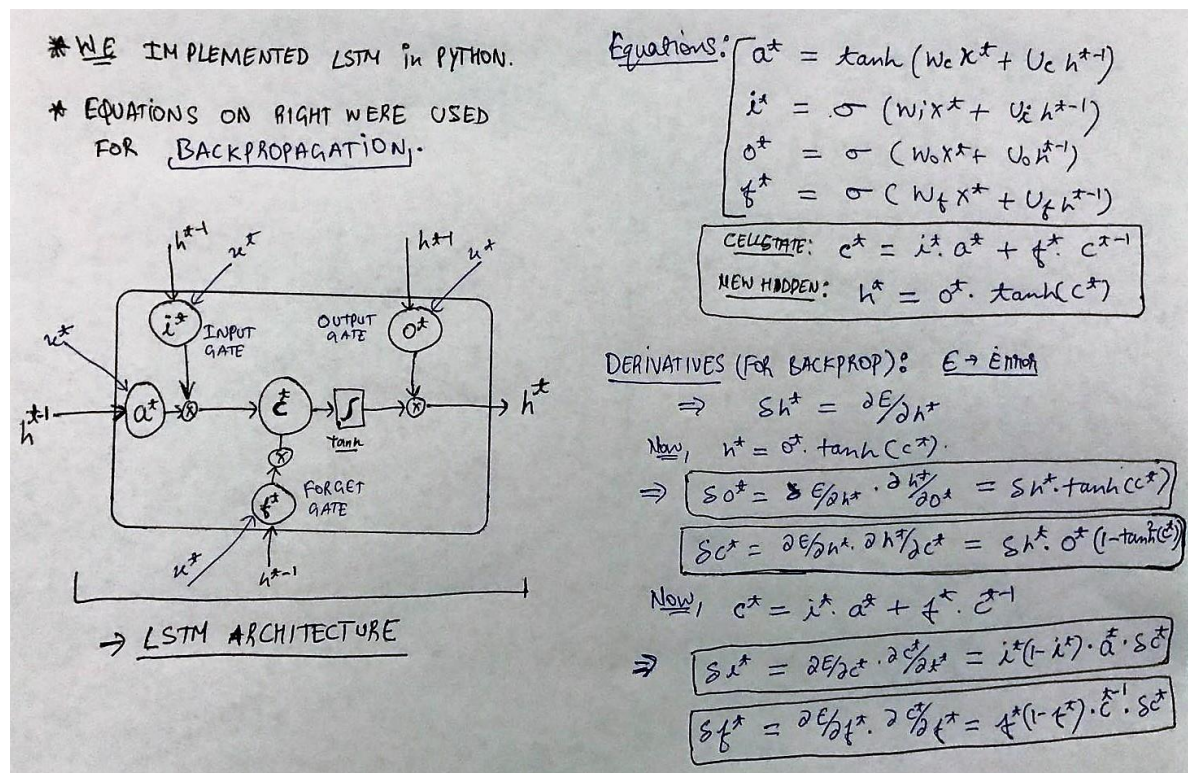 * WE IMPLEMENTED LSTM in PYTHON.
* EQUATIONS ON RIGHT WERE USED
FOR BACKPROPAGATION.
h^t-1 x^t h^t-1 x^t
i^t INPUT GATE
OUTPUT GATE o^t
x^t
h^t-1 → a^t → ⊗ → c^t → ∫ → ⊗ → h^t
tanh
⊗
f^t FORGET GATE
x^t h^t-1
→ LSTM ARCHITECTURE
Equations: a^t = tanh (Wc x^t + Uc h^t-1)
i^t = σ (Wi x^t + Ui h^t-1)
o^t = σ (Wo x^t + Uo h^t-1)
f^t = σ (Wf x^t + Uf h^t-1)
CELLSTATE: c^t = i^t. a^t + f^t. c^t-1
NEW HIDDEN: h^t = o^t. tanh(c^t)
DERIVATIVES (FOR BACKPROP): E → Error
⇒ δh^t = ∂E/∂h^t
Now, h^t = o^t. tanh(c^t).
⇒ δo^t = ∂E/∂h^t . ∂h^t/∂o^t = δh^t. tanh(c^t)
δc^t = ∂E/∂h^t. ∂h^t/∂c^t = δh^t. o^t (1-tanh²(c^t))
Now, c^t = i^t. a^t + f^t. c^t-1
⇒ δi^t = ∂E/∂c^t . ∂c^t/∂i^t = i^t(1-i^t). a^t. δc^t
δf^t = ∂E/∂f^t. ∂c^t/∂f^t = f^t(1-f^t). c^t-1. δc^t